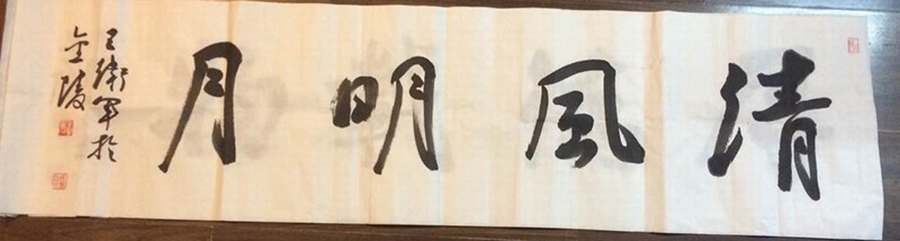 清風明月
王衛軍於
金陵